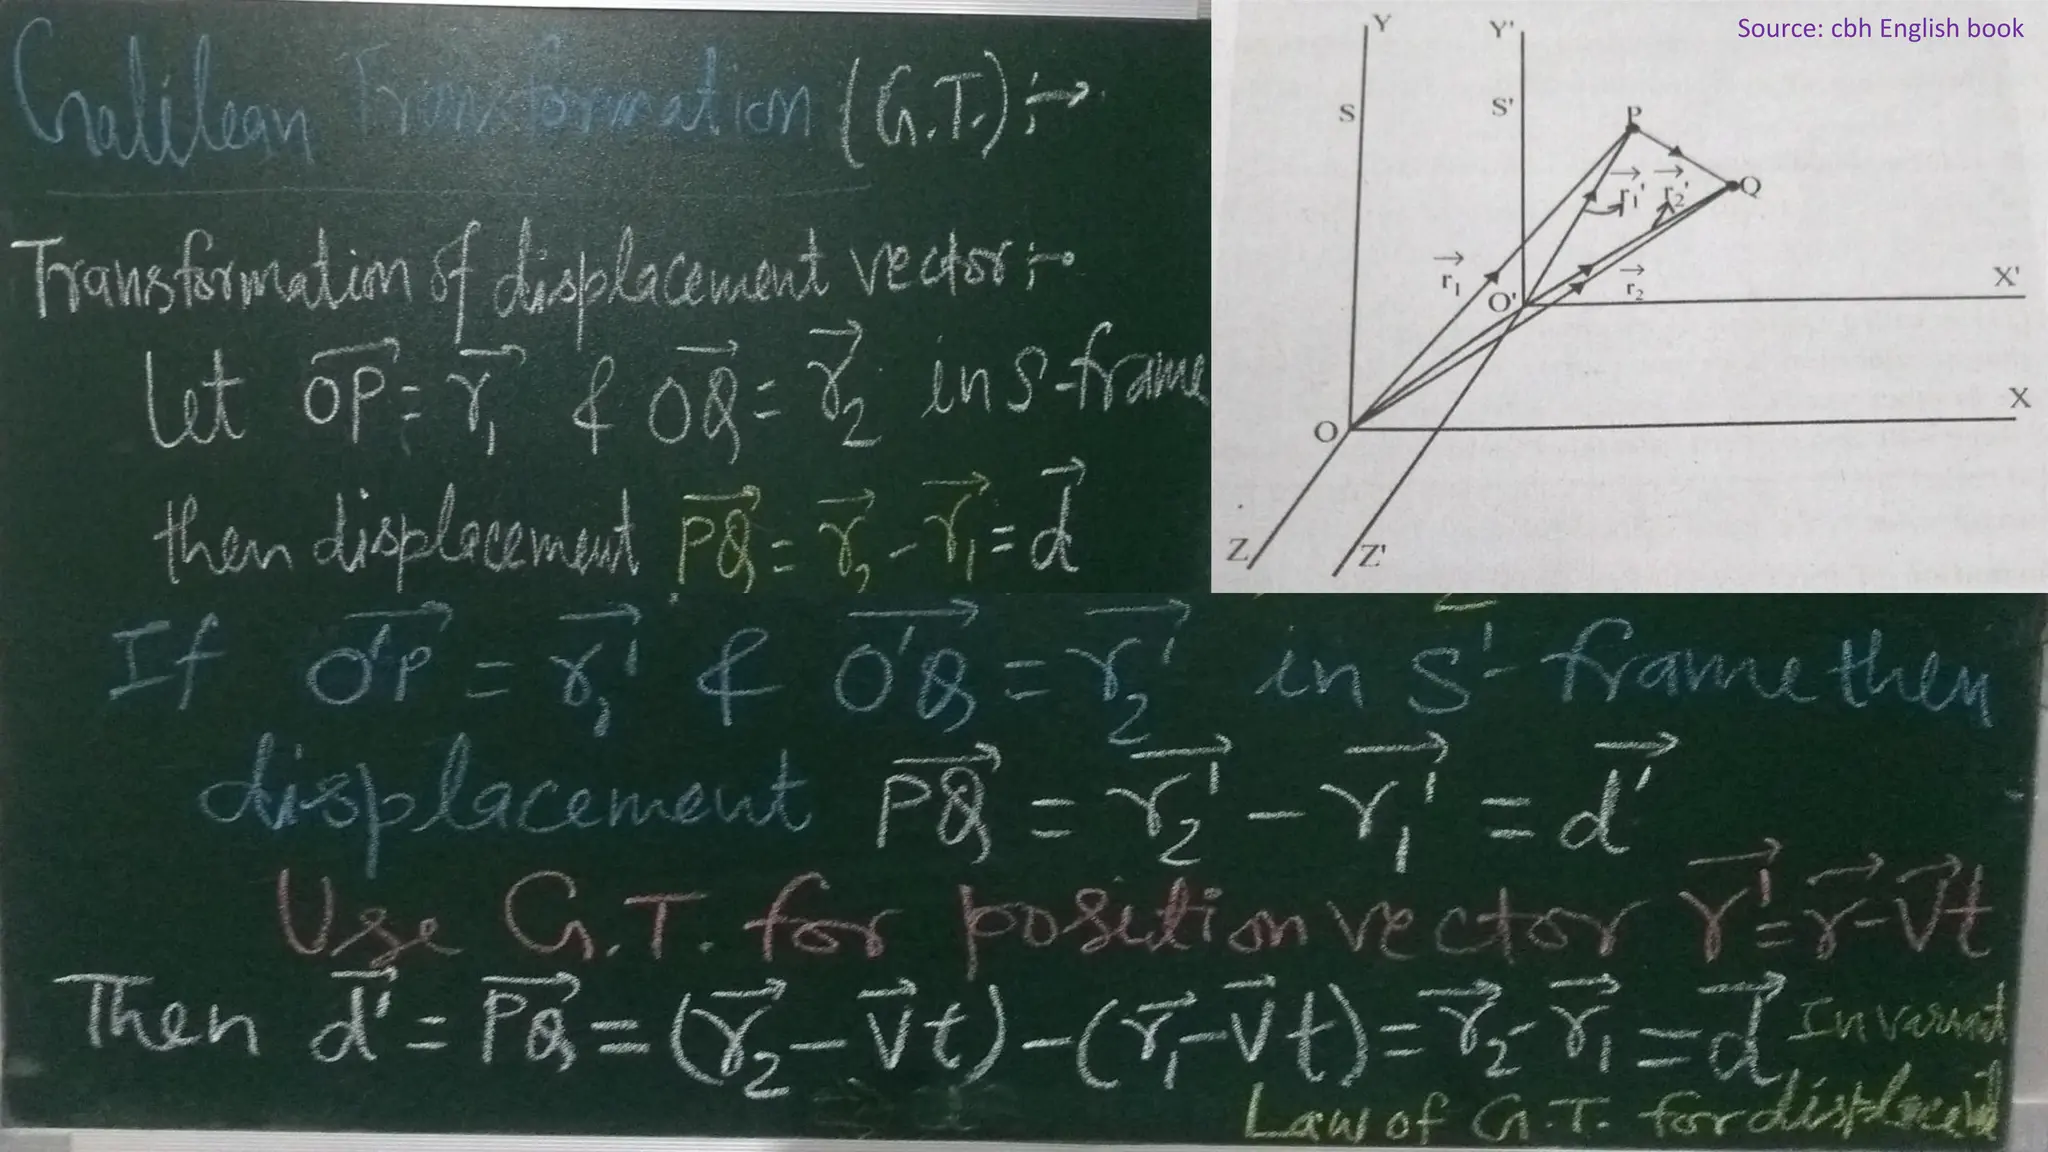 Galilean Transformation (G.T.) :→
Transformation of displacement vector :→
Let \overrightarrow{OP} = \vec{r_1} & \overrightarrow{OQ} = \vec{r_2} in S-frame
then displacement \overrightarrow{PQ} = \vec{r_2} - \vec{r_1} = \vec{d}
If \overrightarrow{O'P} = \vec{r_1'} & \overrightarrow{O'Q} = \vec{r_2'} in S'-frame then
displacement \overrightarrow{PQ} = \vec{r_2'} - \vec{r_1'} = \vec{d'}
Use G.T. for position vector \vec{r'} = \vec{r} - \vec{v}t
Then \vec{d'} = \overrightarrow{PQ} = (\vec{r_2} - \vec{v}t) - (\vec{r_1} - \vec{v}t) = \vec{r_2} - \vec{r_1} = \vec{d} Invariant
Law of G.T. for
Source: cbh English book
Y Y'
S S'
P
\vec{r_1'} \vec{r_2'} Q
\vec{r_1} \vec{r_2}
O' X'
O X
Z Z'